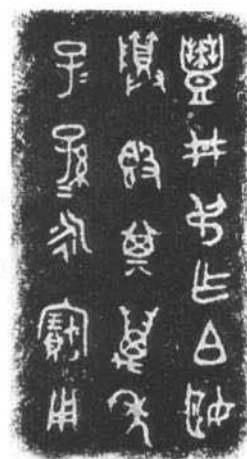 豐井弔乍白姬
尊𣪘其萬年
子=孫=永寶用